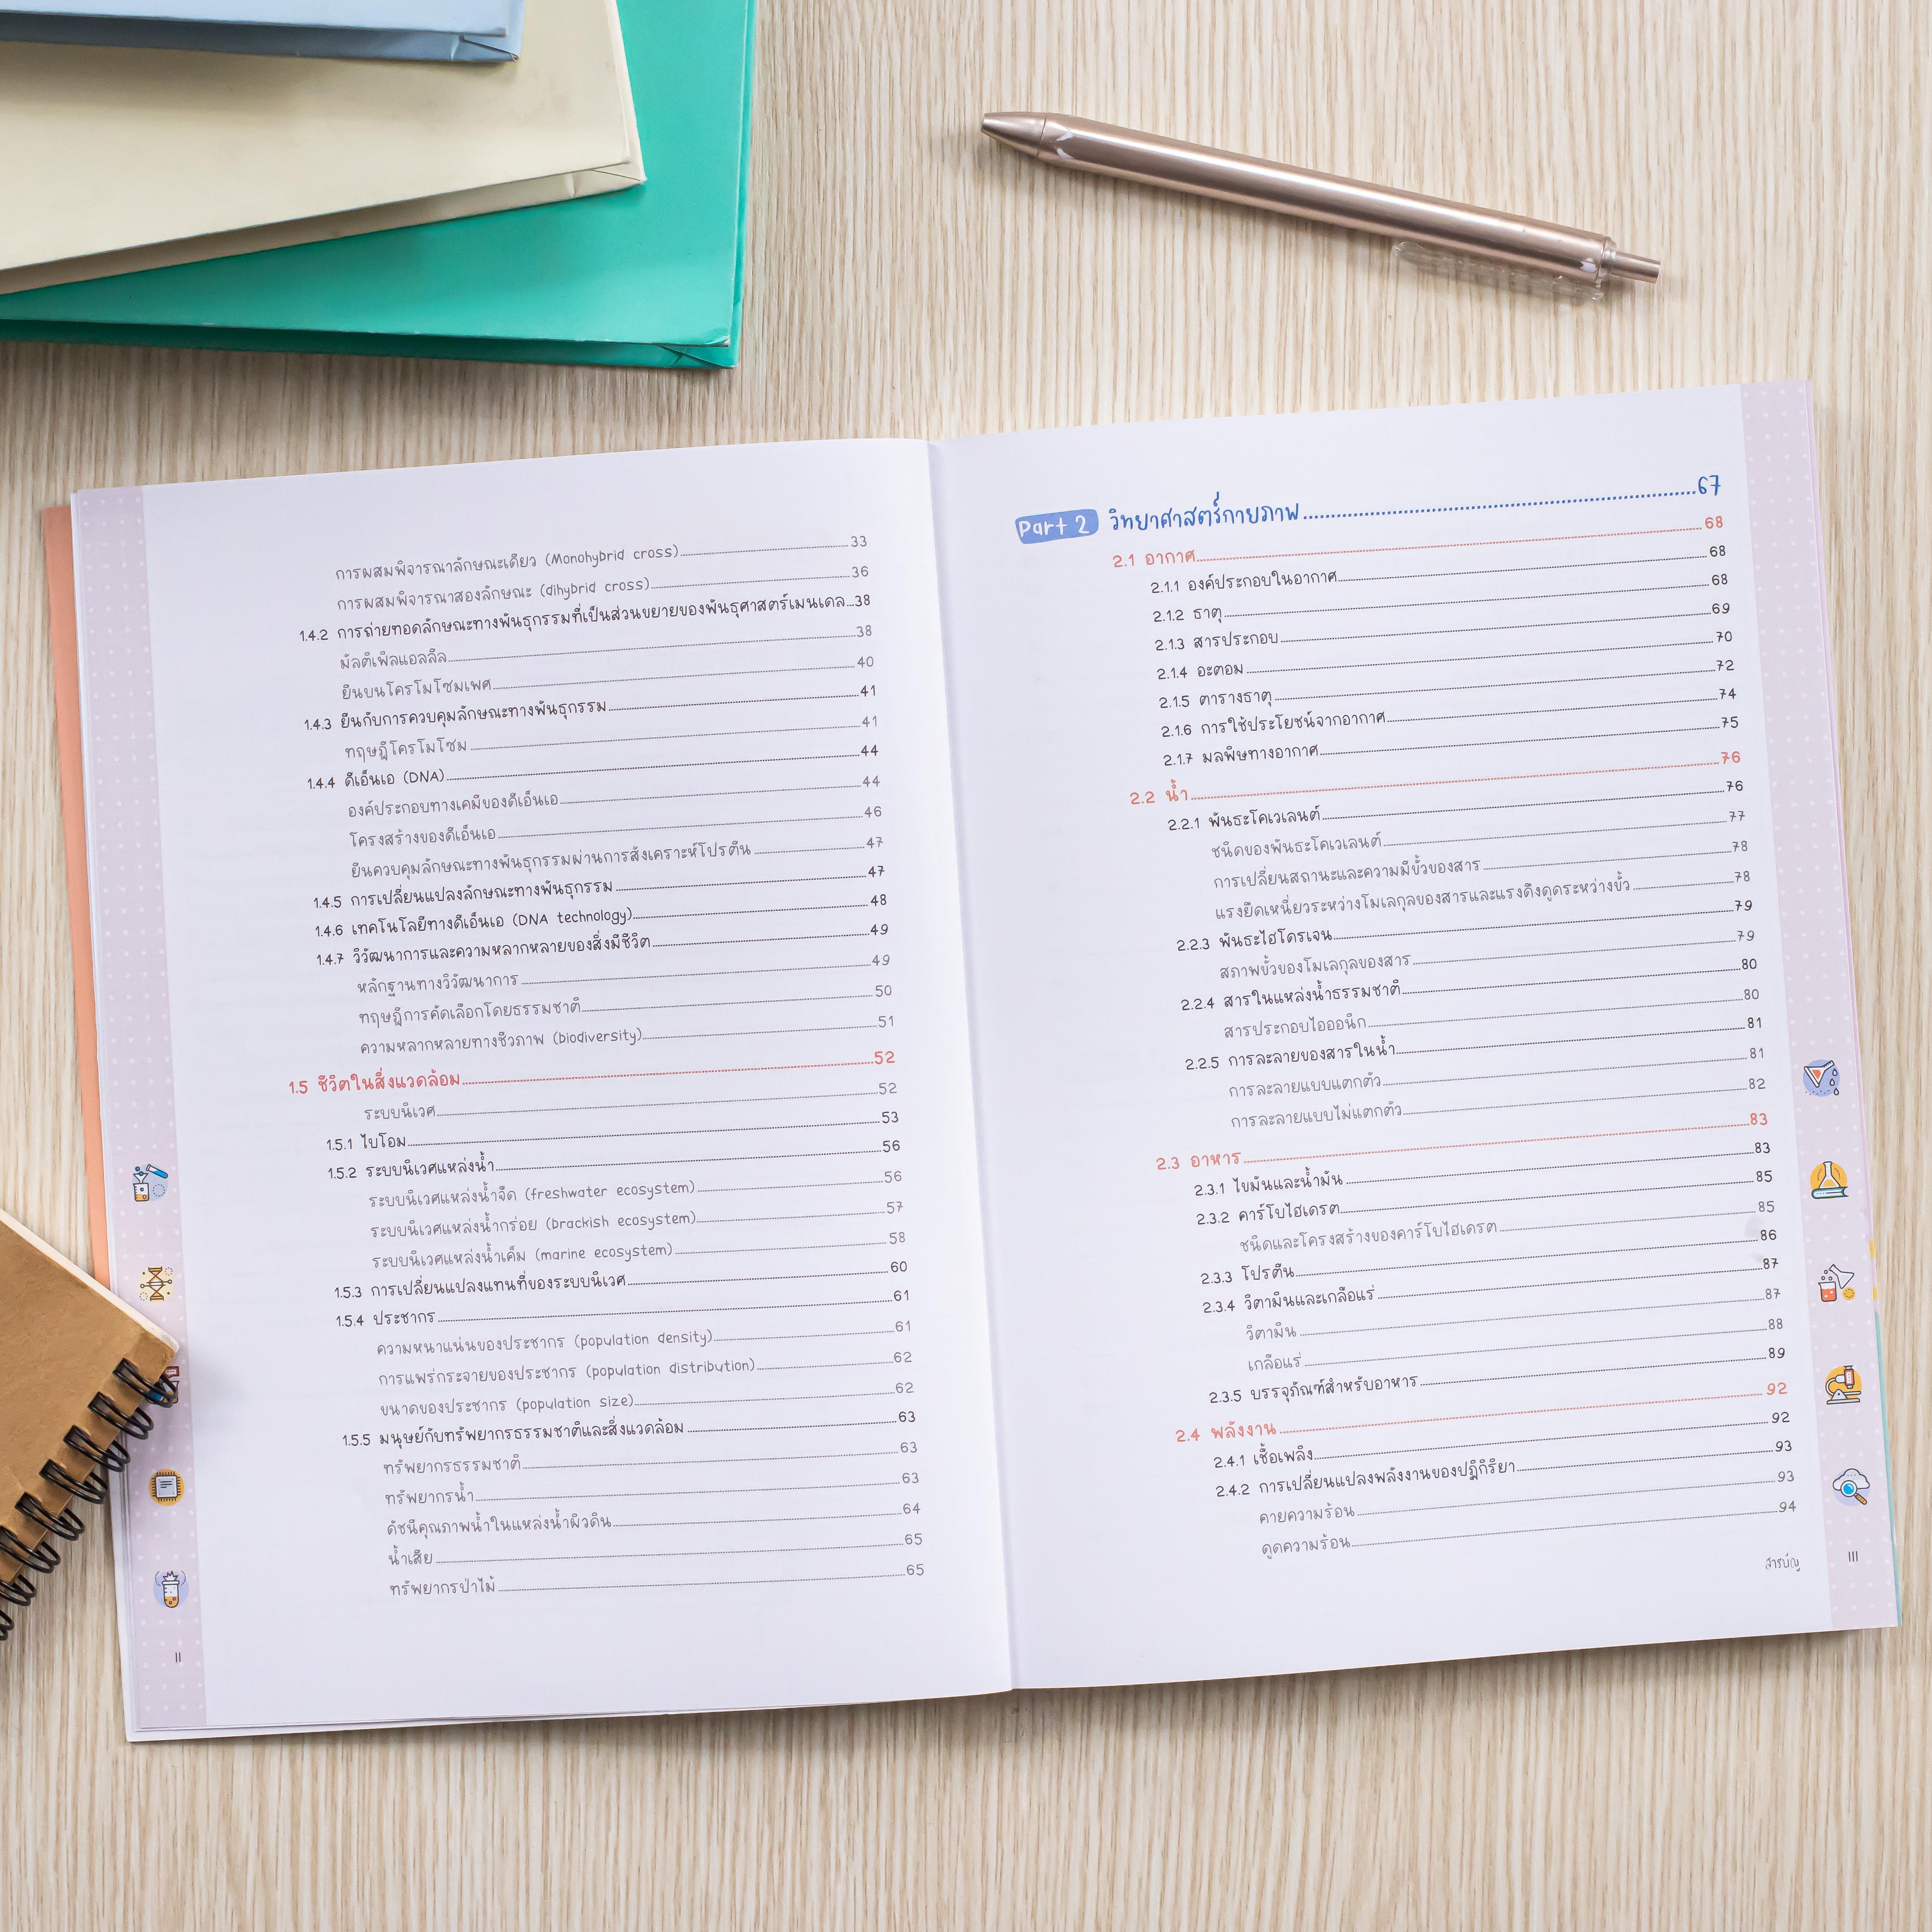 การผสมพิจารณาลักษณะเดียว (Monohybrid cross) 33
การผสมพิจารณาสองลักษณะ (dihybrid cross) 36
1.4.2 การถ่ายทอดลักษณะทางพันธุกรรมที่เป็นส่วนขยายของพันธุศาสตร์เมนเดล 38
มัลติเพิลแอลลีล 38
ยีนบนโครโมโซมเพศ 40
1.4.3 ยีนกับการควบคุมลักษณะทางพันธุกรรม 41
ทฤษฎีโครโมโซม 41
1.4.4 ดีเอ็นเอ (DNA) 44
องค์ประกอบทางเคมีของดีเอ็นเอ 44
โครงสร้างของดีเอ็นเอ 46
ยีนควบคุมลักษณะทางพันธุกรรมผ่านการสังเคราะห์โปรตีน 47
1.4.5 การเปลี่ยนแปลงลักษณะทางพันธุกรรม 47
1.4.6 เทคโนโลยีทางดีเอ็นเอ (DNA technology) 48
1.4.7 วิวัฒนาการและความหลากหลายของสิ่งมีชีวิต 49
หลักฐานทางวิวัฒนาการ 49
ทฤษฎีการคัดเลือกโดยธรรมชาติ 50
ความหลากหลายทางชีวภาพ (biodiversity) 51
1.5 ชีวิตในสิ่งแวดล้อม 52
ระบบนิเวศ 52
1.5.1 ไบโอม 53
1.5.2 ระบบนิเวศแหล่งน้ำ 56
ระบบนิเวศแหล่งน้ำจืด (freshwater ecosystem) 56
ระบบนิเวศแหล่งน้ำกร่อย (brackish ecosystem) 57
ระบบนิเวศแหล่งน้ำเค็ม (marine ecosystem) 58
1.5.3 การเปลี่ยนแปลงแทนที่ของระบบนิเวศ 60
1.5.4 ประชากร 61
ความหนาแน่นของประชากร (population density) 61
การแพร่กระจายของประชากร (population distribution) 62
ขนาดของประชากร (population size) 62
1.5.5 มนุษย์กับทรัพยากรธรรมชาติและสิ่งแวดล้อม 63
ทรัพยากรธรรมชาติ 63
ทรัพยากรน้ำ 63
ดัชนีคุณภาพน้ำในแหล่งน้ำผิวดิน 64
น้ำเสีย 65
ทรัพยากรป่าไม้ 65
II
Part 2 วิทยาศาสตร์กายภาพ 67
2.1 อากาศ 68
2.1.1 องค์ประกอบในอากาศ 68
2.1.2 ธาตุ 68
2.1.3 สารประกอบ 69
2.1.4 อะตอม 70
2.1.5 ตารางธาตุ 72
2.1.6 การใช้ประโยชน์จากอากาศ 74
2.1.7 มลพิษทางอากาศ 75
2.2 น้ำ 76
2.2.1 พันธะโคเวเลนต์ 76
ชนิดของพันธะโคเวเลนต์ 77
การเปลี่ยนสถานะและความมีขั้วของสาร 78
แรงยึดเหนี่ยวระหว่างโมเลกุลของสารและแรงดึงดูดระหว่างขั้ว 78
2.2.3 พันธะไฮโดรเจน 79
สภาพขั้วของโมเลกุลของสาร 79
2.2.4 สารในแหล่งน้ำธรรมชาติ 80
สารประกอบไอออนิก 80
2.2.5 การละลายของสารในน้ำ 81
การละลายแบบแตกตัว 81
การละลายแบบไม่แตกตัว 82
2.3 อาหาร 83
2.3.1 ไขมันและน้ำมัน 83
2.3.2 คาร์โบไฮเดรต 85
ชนิดและโครงสร้างของคาร์โบไฮเดรต 85
2.3.3 โปรตีน 86
2.3.4 วิตามินและเกลือแร่ 87
วิตามิน 87
เกลือแร่ 88
2.3.5 บรรจุภัณฑ์สำหรับอาหาร 89
2.4 พลังงาน 92
2.4.1 เชื้อเพลิง 92
2.4.2 การเปลี่ยนแปลงพลังงานของปฏิกิริยา 93
คายความร้อน 93
ดูดความร้อน 94
สารบัญ III